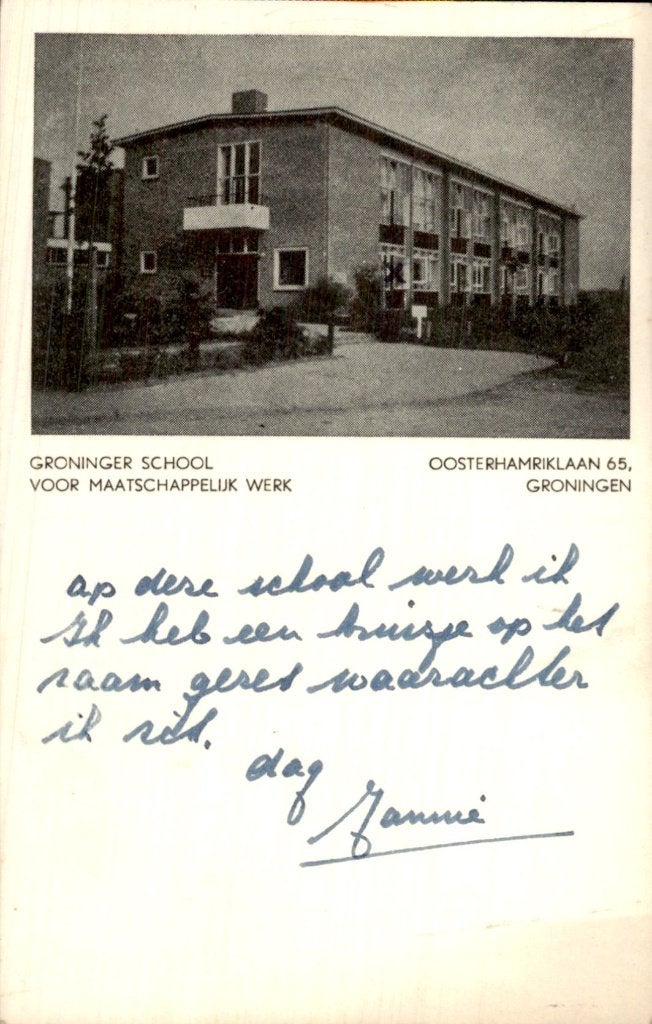 GRONINGER SCHOOL
VOOR MAATSCHAPPELIJK WERK
OOSTERHAMRIKLAAN 65,
GRONINGEN
op deze school werk ik
Ik heb een kruisje op het
raam gezet waarachter
ik zit.
dag
Jannie